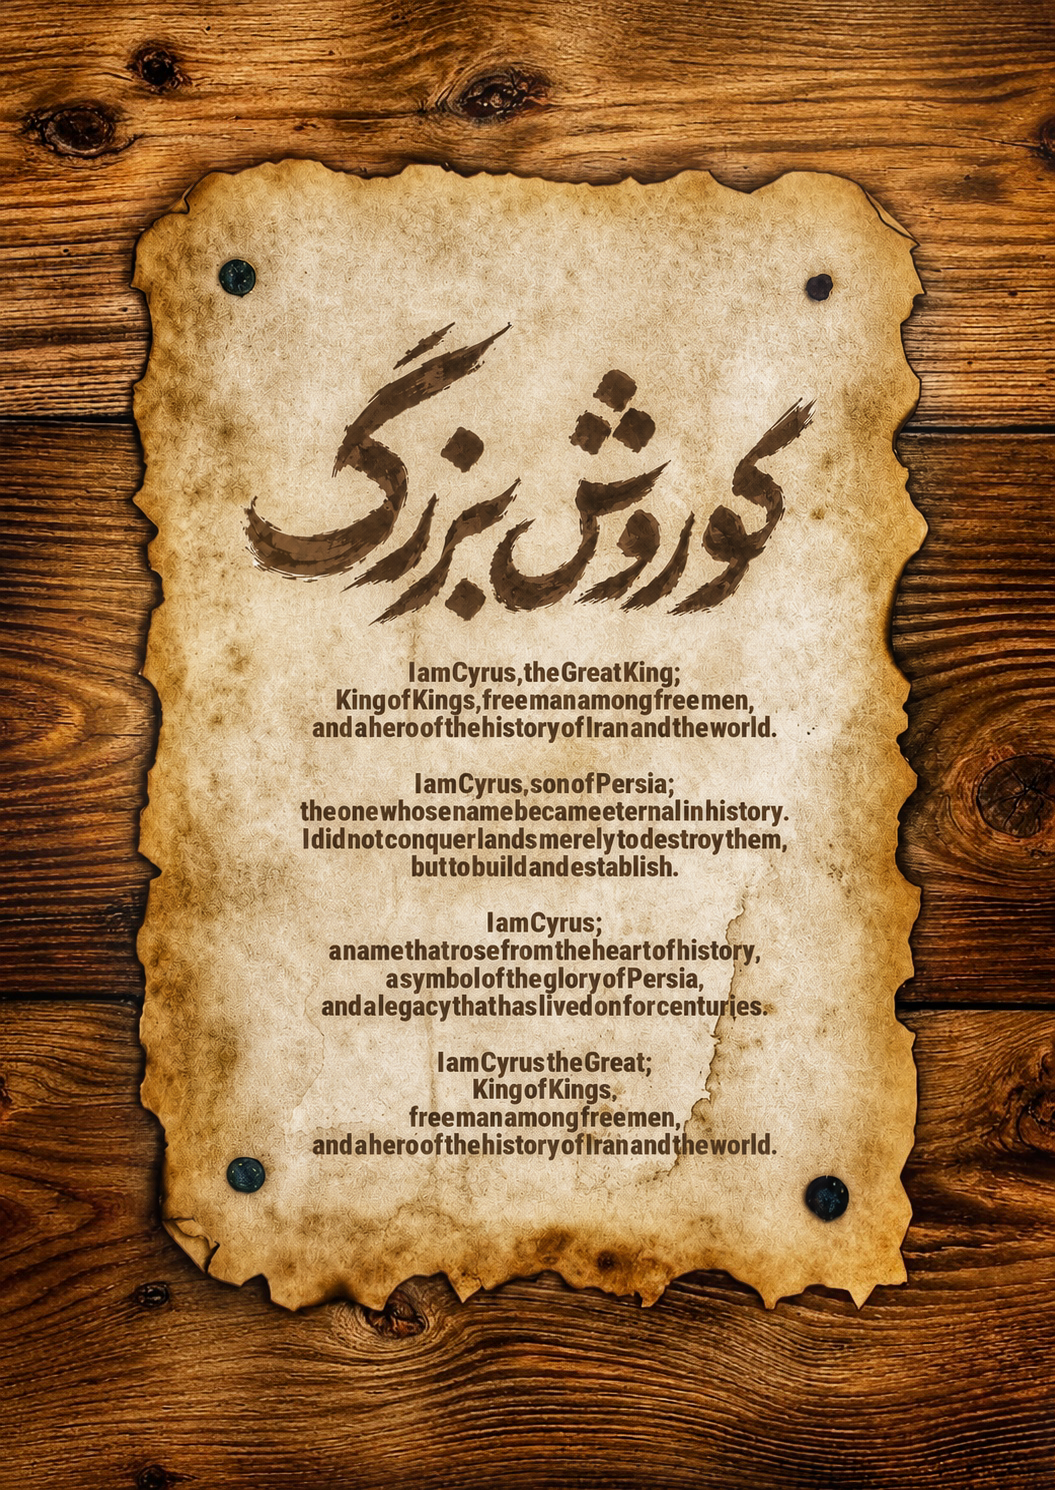 کوروش بزرگ
I am Cyrus, the Great King;
King of Kings, free man among free men,
and a hero of the history of Iran and the world.
I am Cyrus, son of Persia;
the one whose name became eternal in history.
I did not conquer lands merely to destroy them,
but to build and establish.
I am Cyrus;
a name that rose from the heart of history,
a symbol of the glory of Persia,
and a legacy that has lived on for centuries.
I am Cyrus the Great;
King of Kings,
free man among free men,
and a hero of the history of Iran and the world.